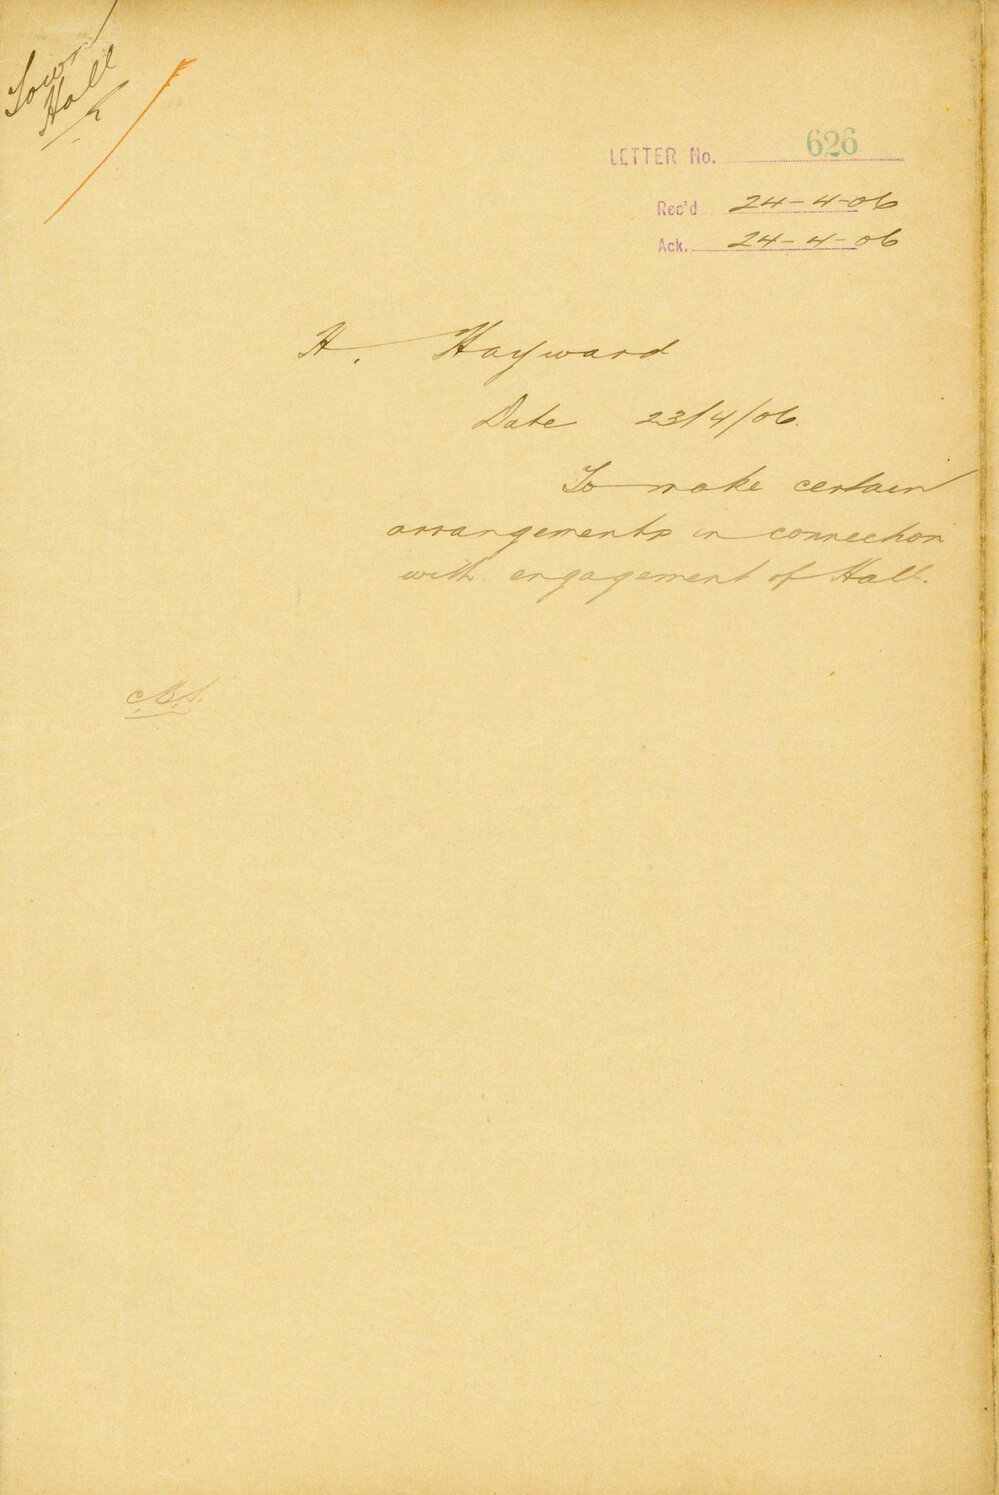 Town
Hall
LETTER No. 626
Rec'd 24-4-06
Ack. 24-4-06
H. Hayward
Date 23/4/06.
To make certain
arrangements in connection
with engagement of Hall.